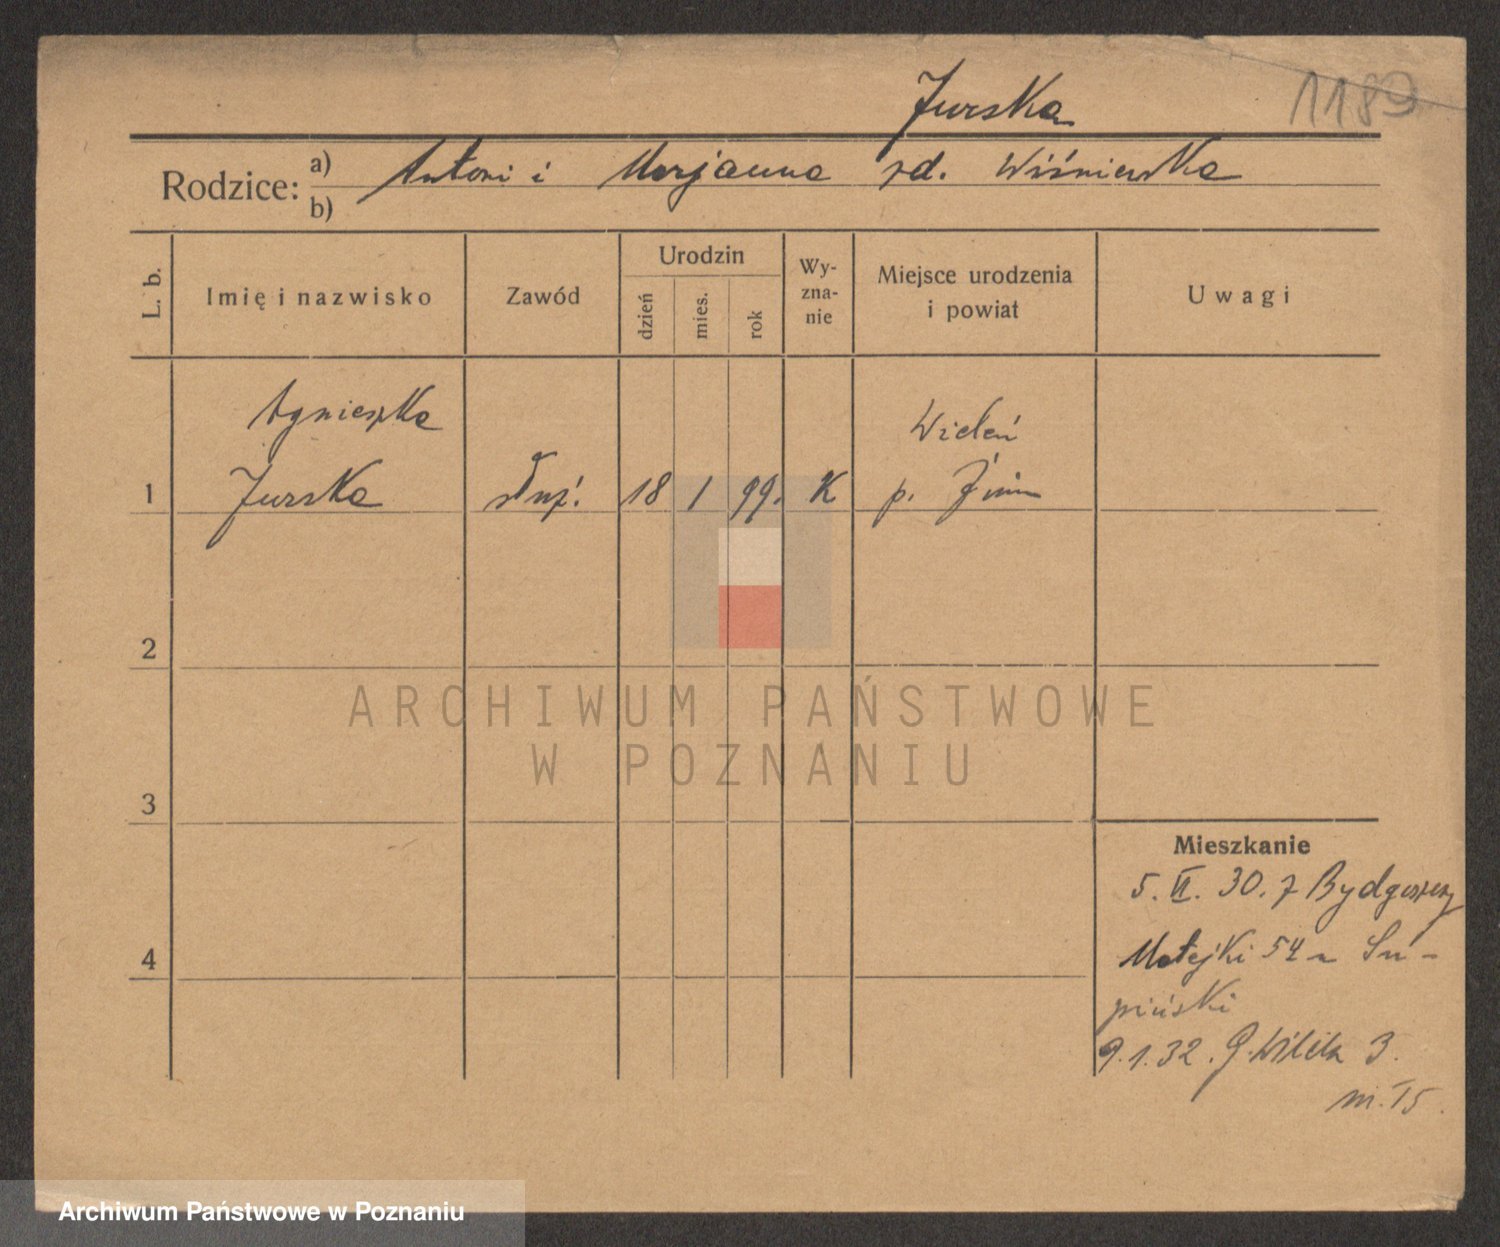 Jurska
1189
Rodzice: a) Antoni i Marjanna rd. Wiśniewska
b)
L. b.
Imię i nazwisko
Zawód
Urodzin
dzień
mies.
rok
Wy-
zna-
nie
Miejsce urodzenia
i powiat
Uwagi
Agnieszka
Wieleń
1 Jurska służ. 18 1 99. K p. Żnin
2
ARCHIWUM PAŃSTWOWE
W POZNANIU
3
Mieszkanie
5. VI. 30. z Bydgoszczy
4
Matejki 54 u Su-
piński
9.1.32. G. Wilda 3.
m. 15.
Archiwum Państwowe w Poznaniu